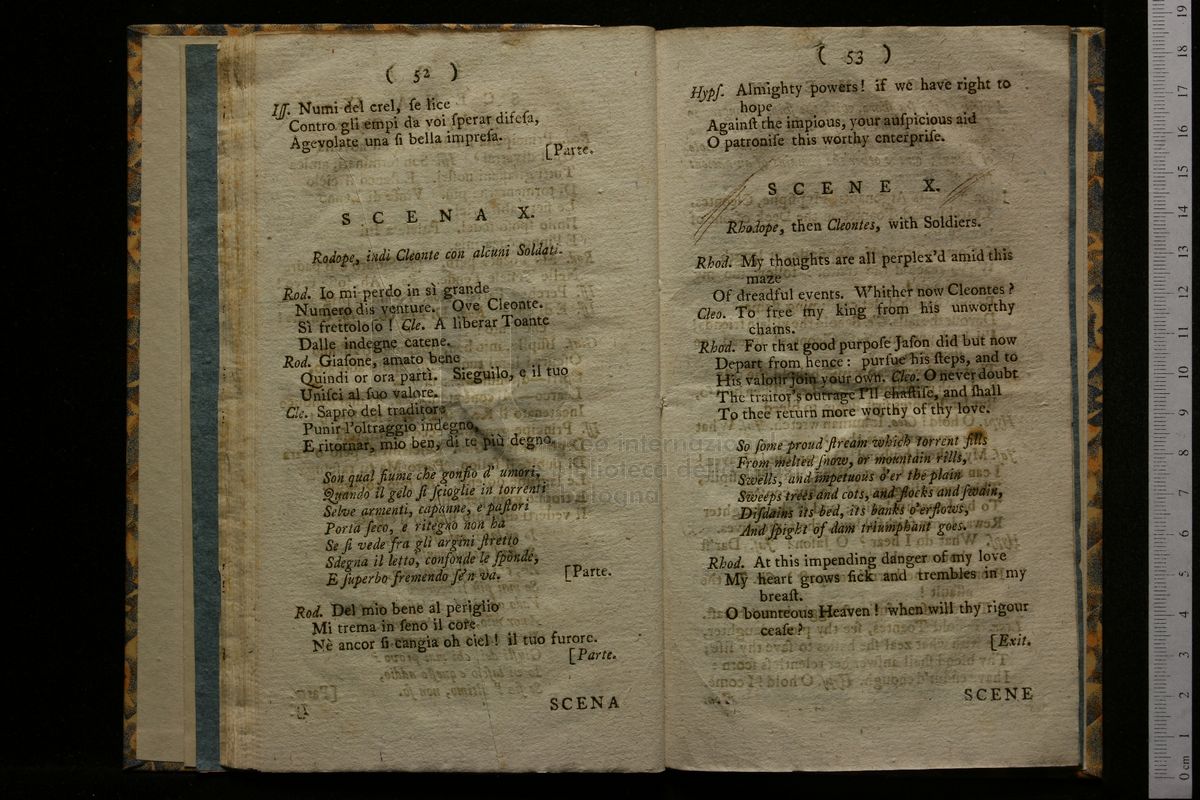 ( 52 )
Iſſ. Numi del crel, ſe lice
Contro gli empi da voi ſperar difeſa,
Agevolate una ſi bella impreſa.
[Parte.
SCENA X.
Rodope, indi Cleonte con alcuni Soldati.
Rod. Io mi perdo in sì grande
Numero dis venture. Ove Cleonte.
Sì frettoloſo ! Cle. A liberar Toante
Dalle indegne catene.
Rod. Giaſone, amato bene
Quindi or ora partì. Sieguilo, e il tuo
Uniſci al ſuo valore.
Cle. Saprò del traditore
Punir l'oltraggio indegno,
E ritornar, mio ben, di te più degno.
Son qual fiume che gonfio d' umori,
Quando il gelo ſi ſcioglie in torrenti
Selve armenti, capanne, e paſtori
Porta ſeco, e ritegno non ha
Se ſi vede fra gli argini ſtretto
Sdegna il letto, confonde le ſponde,
E ſuperbo fremendo ſe'n va.
[Parte.
Rod. Del mio bene al periglio
Mi trema in ſeno il core
Nè ancor ſi cangia oh ciel ! il tuo furore.
[Parte.
SCENA
( 53 )
Hypſ. Almighty powers! if we have right to
hope
Againſt the impious, your auſpicious aid
O patroniſe this worthy enterpriſe.
SCENE X.
Rhodope, then Cleontes, with Soldiers.
Rhod. My thoughts are all perplex'd amid this
maze
Of dreadful events. Whither now Cleontes ?
Cleo. To free my king from his unworthy
chains.
Rhod. For that good purpoſe Jaſon did but now
Depart from hence : purſue his ſteps, and to
His valour join your own. Cleo. O never doubt
The traitor's outrage I'll chaſtiſe, and ſhall
To thee return more worthy of thy love.
So ſome proud ſtream which torrent fills
From melted ſnow, or mountain rills,
Swells, and impetuous o'er the plain
Sweeps trees and cots, and flocks and ſwain,
Diſdains its bed, its banks o'erflows,
And ſpight of dam triumphant goes.
Rhod. At this impending danger of my love
My heart grows ſick and trembles in my
breaſt.
O bounteous Heaven ! when will thy rigour
ceaſe ?
[Exit.
SCENE